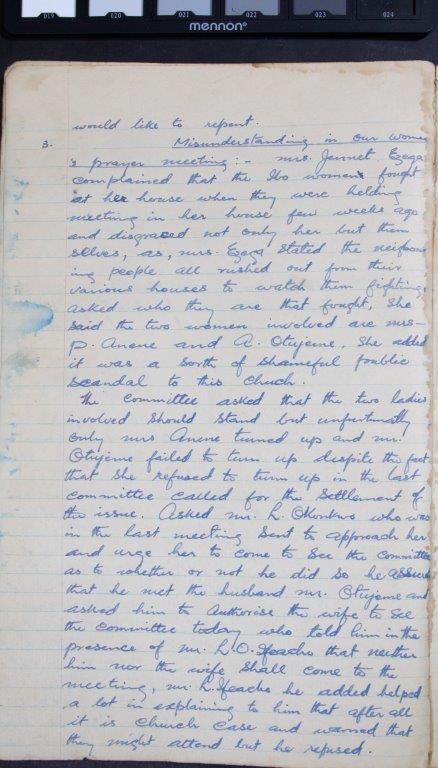 019 020 021 022 023 024
mennon®
would like to repent.
3. Misunderstanding in our women
's prayer meeting :- Mrs. Jennet Ezega
complained that the Ibo women fought
at her house when they were holding
meeting in her house few weeks ago
and disgraced not only her but them
selves, as, Mrs. Ezega stated the neighbour
ing people all rushed out from their
various houses to watch them fighting.
asked who they are that fought, She
said the two women involved are Mrs-
P. Anene and A. Otujeme, She added
it was a sorth of shameful public
scandal to this Church.
The Committee asked that the two ladies
involved should stand but unfurtunatly
only Mrs Anene turned up and Mr.
Otujeme failed to turn up despite the fact
that she refused to turn up in the last
committee called for the settlement of
the issue. Asked Mr. L. Okonkwo who was
in the last meeting sent to approach her
and urge her to come to see the committee
as to whether or not he did so he assure
that he met the husband Mr. Otujeme and
asked him to Authorise the wife to see
the committee today who told him in the
presence of Mr. L.O. Ifeacho that neither
him nor the wife shall come to the
meeting, Mr. L. Ifeacho he added helped
a lot in explaining to him that after all
it is Church case and warned that
they might attend but he refused.